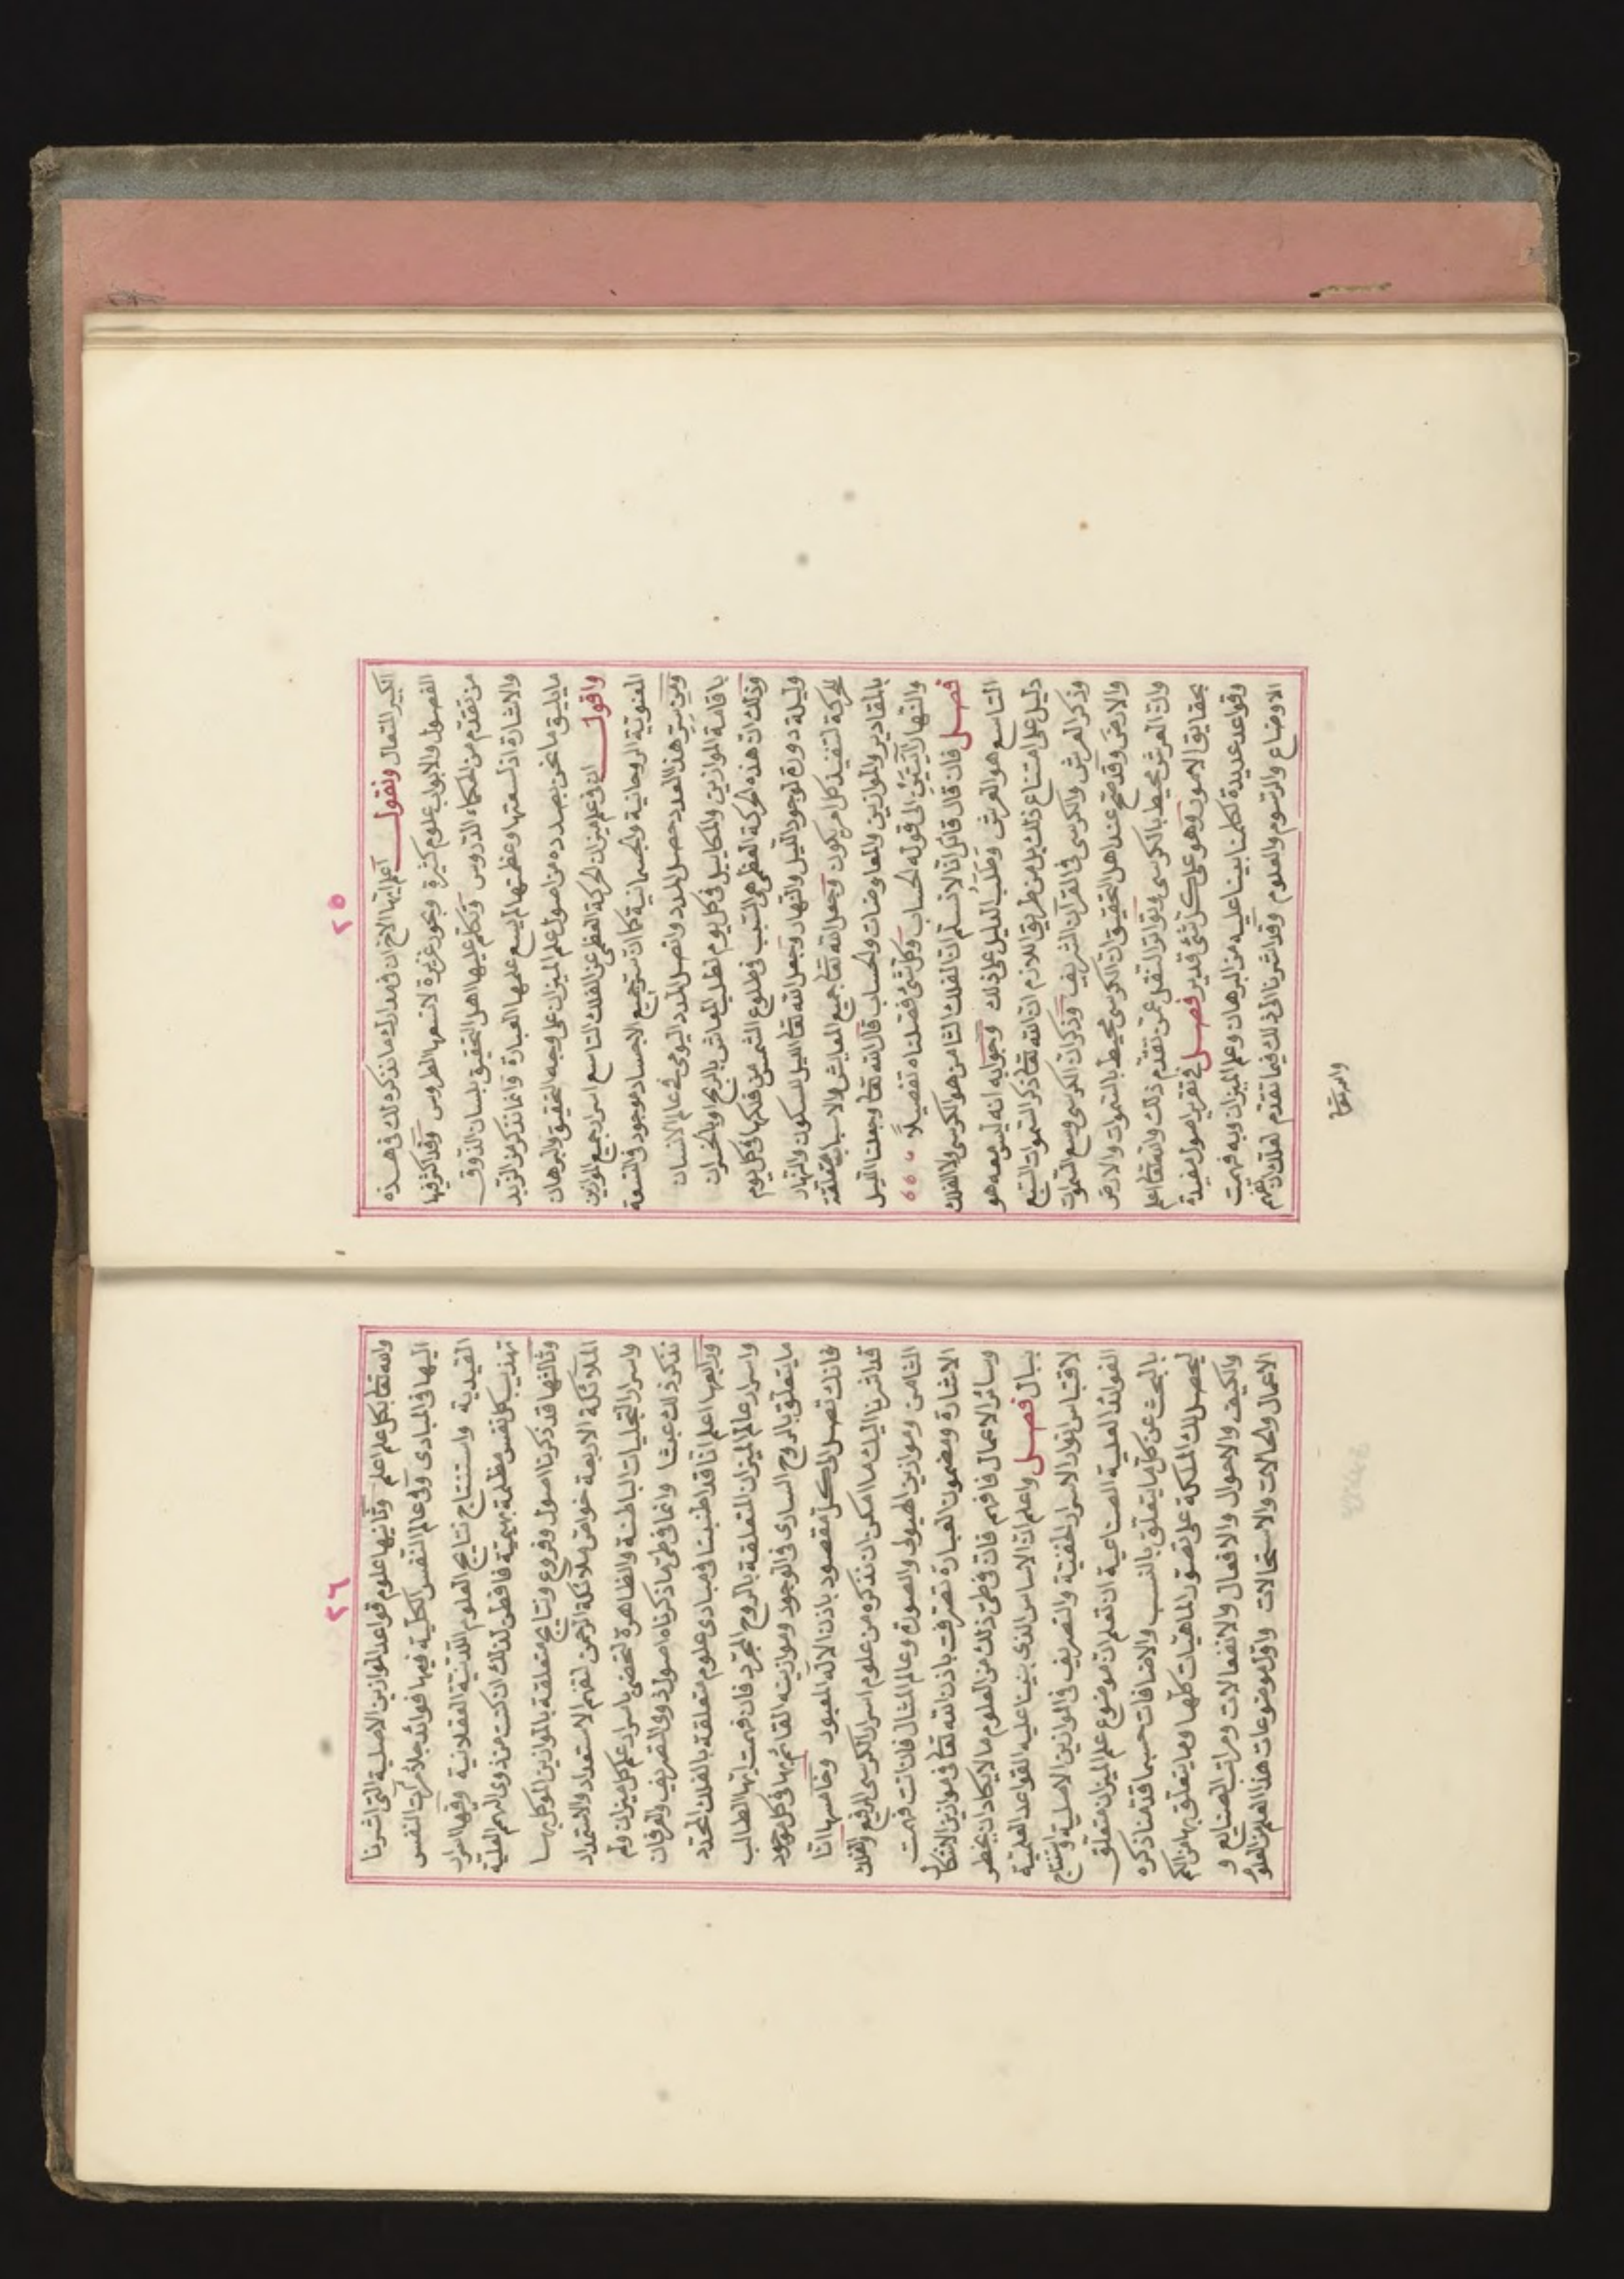 ٢٥
الكبير المتعال ونقول اعلم ايها الاخ ان فى مدارك ما نذكره لك فى هذه
الفصول والابواب علوم كثيرة وبحور غزيرة لا تسعها الطروس وقد اكثر فيها
من تقدم من الحكماء الدروس وتكلم عليها اهل التحقيق بلسان الذوق
والاشارة اذ لسعتها وعظمتها لم يسع علمها العبارة وانما نذكر من الزبد
ما يليق ما نحن بصدده من اصول علم الميزان على وجه التحقيق والبرهان
واقول ان فى علم ميزان الحركة العظمى عن الفلك التاسع اسرار جميع الموازين
المعنوية الروحانية والجسمانية كما ان سر جميع الاجساد موجود فى التسعة
ومن سر هذا العدد حصل المدد واتصل المدد اليومى فى عالم الانسان
باقامة الموازين والمكاييل فى كل يوم لطلب المعاش بالربح او بالخسران
وذلك ان هذه الحركة العظمى هى السبب فى طلوع الشمس من فلكها فى كل يوم
وليلة دورة لوجود الليل والنهار وجعل الله تعالى الليل للسكون والنهار
للحركة لتنفيذ كل امر يكون وجعل الله تعالى جميع المعايش والاسباب متعلقة
بالمقادير والموازين والمعاوضات والحساب قال الله تعالى وجعلنا الليل
والنهار آيتين الى قوله الحساب وكل شئ فصلناه تفصيلا
فصل فان قال قائل انا لا نسلم ان الفلك الثامن هو الكرسى ولا الفلك
التاسع هو العرش وطلب الدليل على ذلك وجوابه انه ليس معه هو
دليل على امتناع ذلك بل من طريق اللازم ان الله تعالى ذكر السموات السبع
وذكر العرش والكرسى فى القرآن الشريف وذكر ان الكرسى وسع السموات
والارض وقد صح عند اهل التحقيق ان الكرسى محيط بالسموات والارض
وان العرش محيط بالكرسى وتواتر النقل عمن تقدم ذلك والله تعالى اعلم
بحقايق الامور وهو على كل شئ قدير فصل فى تقرير اصول مفيدة
وقواعد عديدة لكلمنا بينا عليه من البرهان وعلم الميزان وبه فهمت
الاوضاع والرسوم والعلوم وقد اشرنا الى ذلك فيما تقدم لعلك ان تفهم
والله تعالى
٢٦
والله تعالى بكل علم اعلم وثانيها علوم قواعد الموازين الاصلية التى اشرنا
اليها فى المبادى وفى عالم النفس الكلية فيها فوائد جلاء مرآت النفس
القيدية واستنتاج نتايج العلوم اللدنية العقلانية وفيها اسرار
تهذيب كل نفس مظلمة بهيمية فافطن لذلك ان كنت من ذوى الهمم العلية
وثالثها قد ذكرنا اصول وفروع ونتايج متعلقة بالموازين الموكل بها
الملائكة الاربعة خواص ملائكة الرحمن لتفهم الاستعداد والاستمداد
واسرار التجليات الباطنة والظاهرة لتخصنى باسرار علم كل ميزان ولم
نذكر ذلك عبثا وانما فى طى ما ذكرناه اصول ذوى التصريف والعرفان
ورابعها اعلم انا قد اطنبنا فى مبادى علوم متعلقة بالفلك المحدد
واسرار عالم الميزان المتعلقة بالروح المجرد فان فهمت ايها الطالب
ما يتعلق بالروح السارى فى الوجود وموازينه القائم بها فى كل موجود
فانك تصل الى كل مقصود باذن الاله المعبود وخامسها انا
قد اشرنا اليك ما امكن ان نذكره من علوم اسرار الكرسى الرفيع والفلك
الثامن وموازين الهيولى والصورة وعالم المثال فان انت فهمت
الاشارة ومضمون العبارة تصرفت باذن الله تعالى فى موازين الاشكال
وسائر الاعمال فافهم فان فى طى ذلك من العلوم ما لا يكاد ان يخطر
ببال فصل واعلم ان الاساس الذى بنينا عليه القواعد العلمية
لاقتباس انوار الاسرار الخفية والتصريف فى الموازين الاصلية واستنتاج
الفوائد العملية الصناعية ان تعلم ان موضوع علم الميزان متعلق
بالبحث عن كل ما يتعلق بالنسب والاضافات حسبما قدمنا ذكره
ليحصل لك الملكة على تصور الماهيات كلها وما يتعلق بها من الكم
والكيف والاحوال والافعال والانفعالات ومراتب الصنايع و
الاعمال والحالات والاستحالات واول موضوعات هذا العلم من العلوم